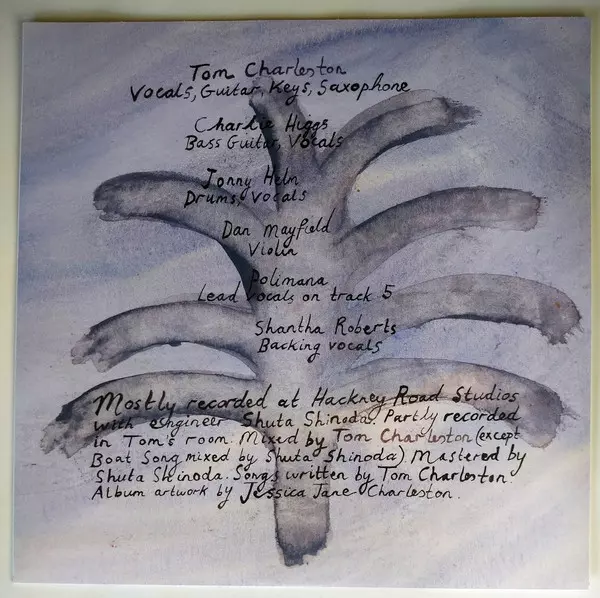 Tom Charleston
Vocals, Guitar, Keys, Saxophone
Charlie Higgs
Bass Guitar, Vocals
Jonny Helm
Drums, Vocals
Dan Mayfield
Violin
Polimana
Lead vocals on track 5
Shantha Roberts
Backing vocals
Mostly recorded at Hackney Road Studios
with engineer Shuta Shinoda. Partly recorded
in Tom's room. Mixed by Tom Charleston (except
Boat Song mixed by Shuta Shinoda) Mastered by
Shuta Shinoda. Songs written by Tom Charleston.
Album artwork by Jessica Jane Charleston.